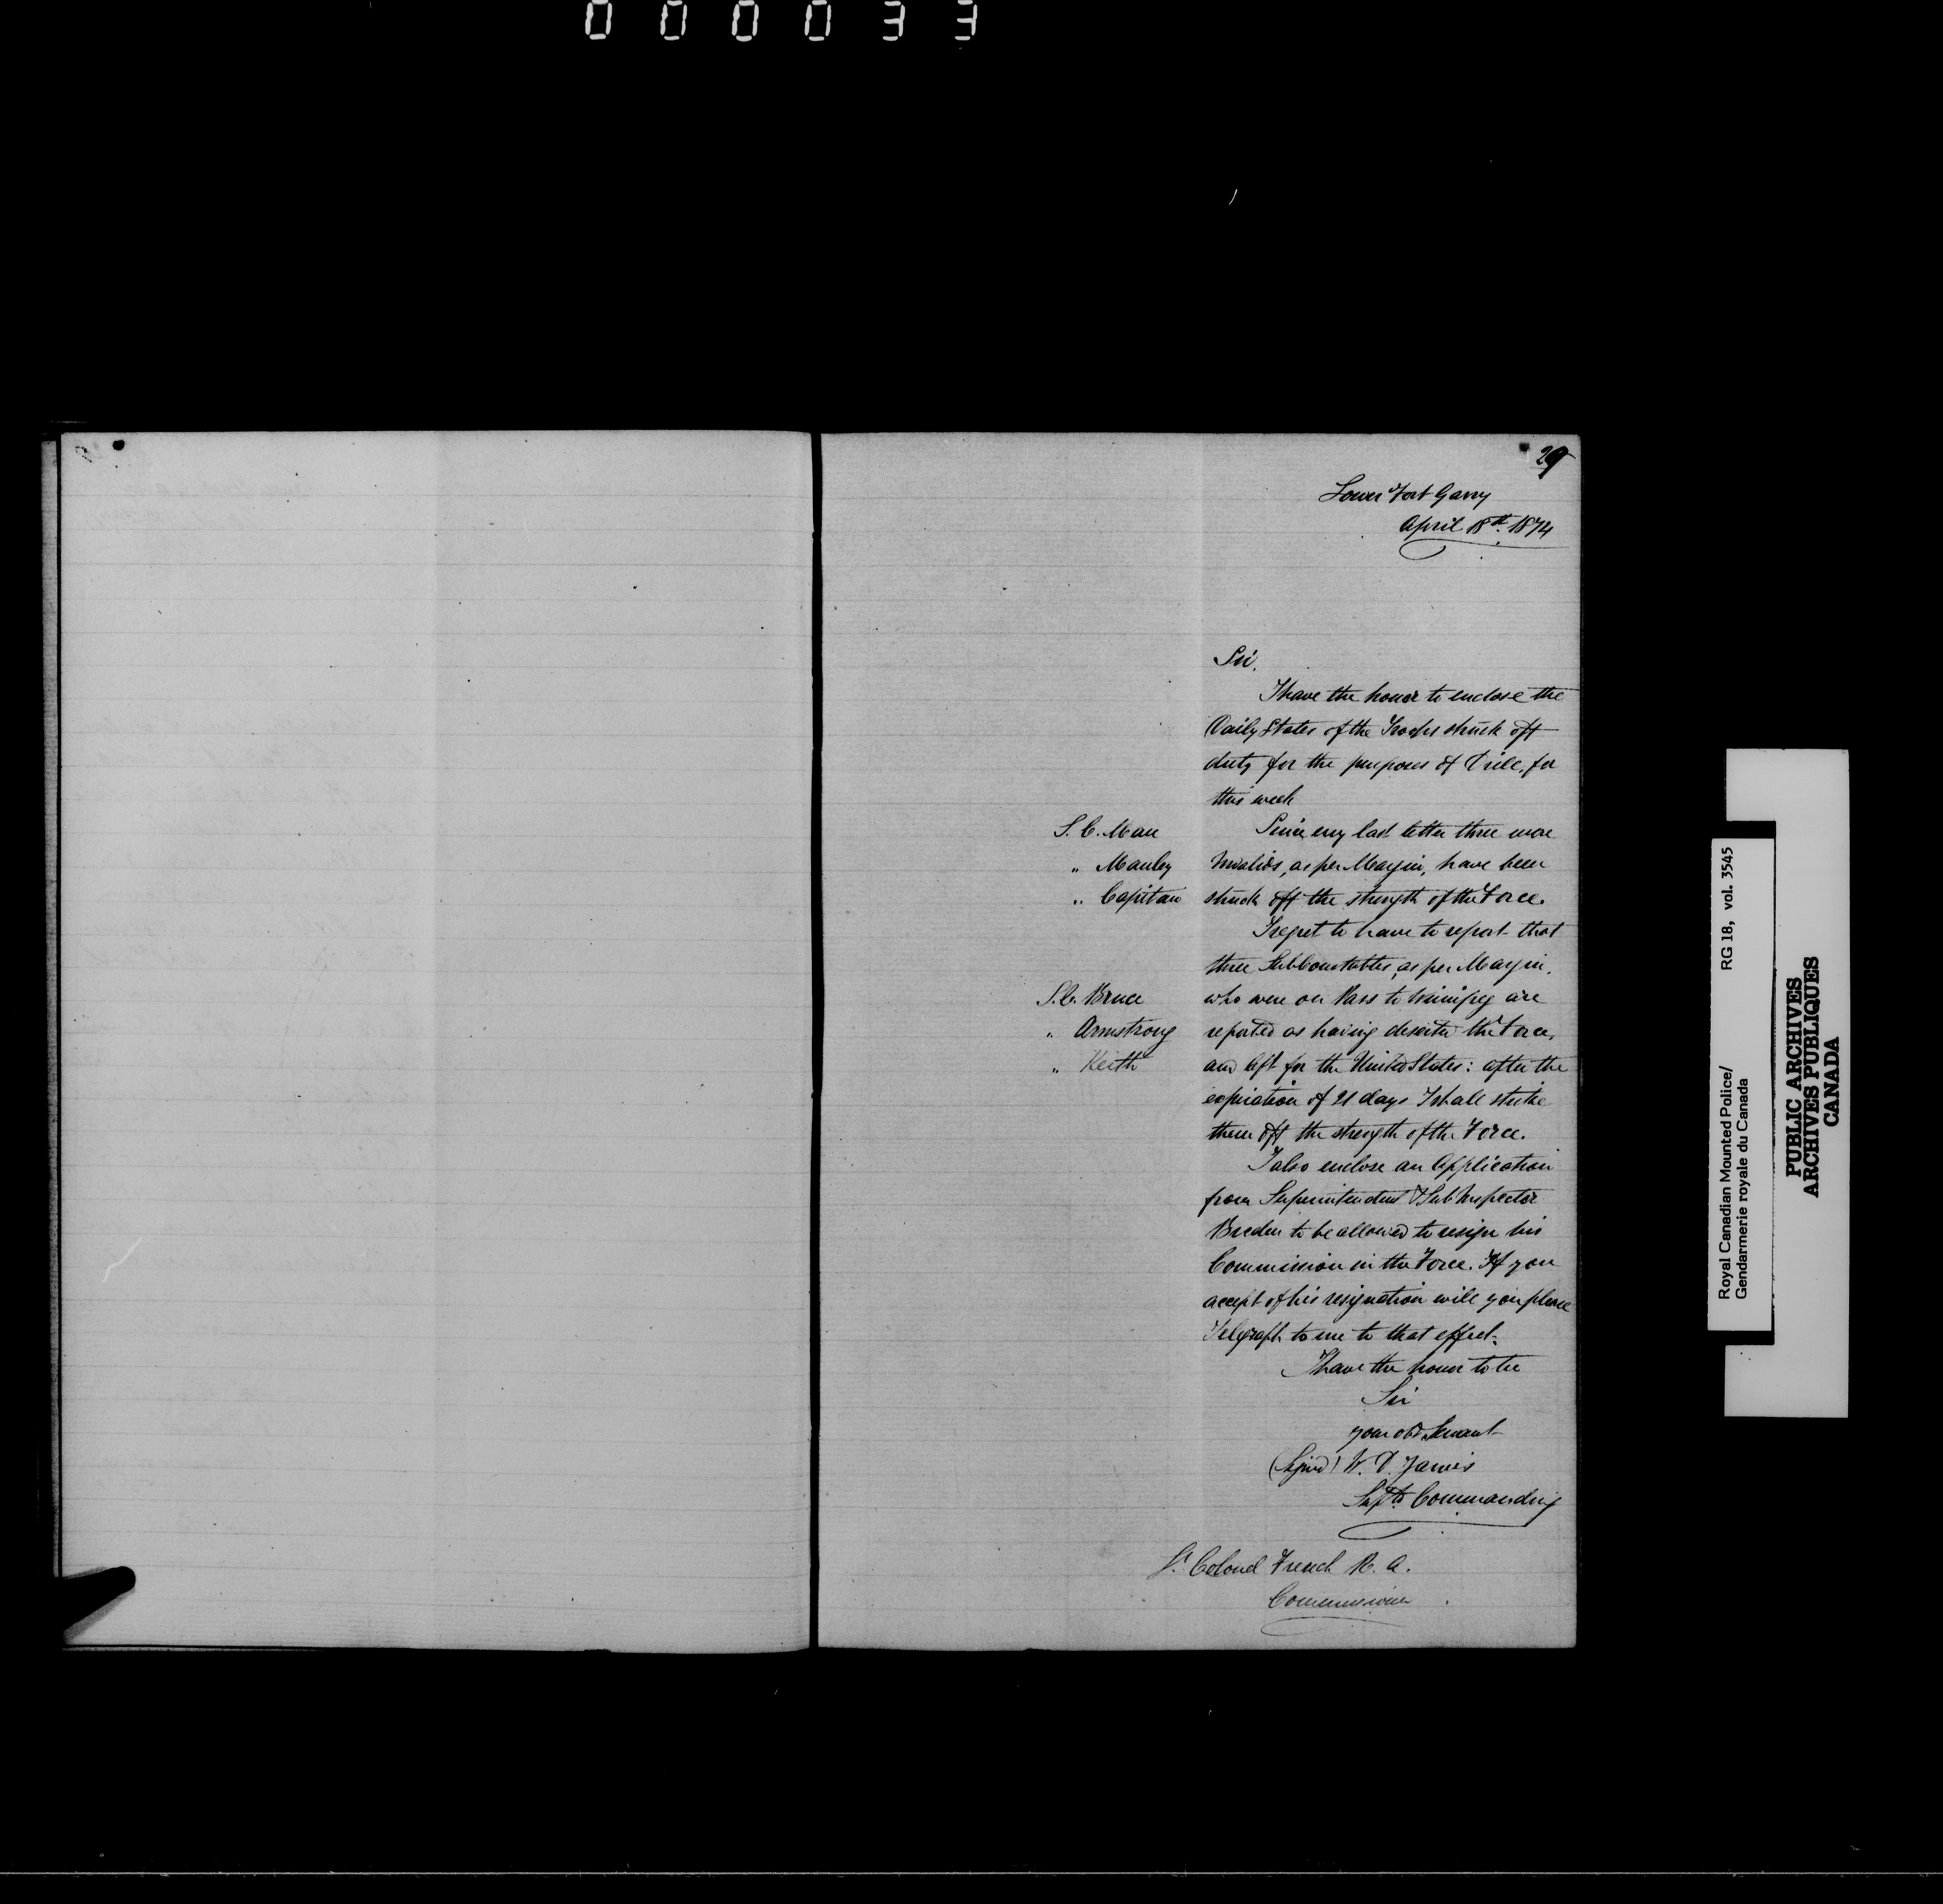 000033
29
Lower Fort Garry
April 18th. 1874
Sir,
I have the honor to enclose the
Daily States of the Troops struck off
duty for the purposes of Drill, for
this week
S. C. Mair
Since my last letter three more
" Manley
Invalids, as per Margin, have been
" Capitain
struck off the strength of the Force.
I regret to have to report that
three Sub Constables, as per Margin,
S.C. Bruce
who were on Pass to Winnipeg are
" Armstrong
reported as having deserted the Force,
" Keith
and left for the United States: after the
expiration of 21 days I shall strike
them off the strength of the Force.
I also enclose an Application
from Superintendent & Sub Inspector
Breden to be allowed to resign his
Commission in the Force. If you
accept of his resignation will you please
Telegraph to me to that effect.
I have the honor to be
Sir
your obd. Servant
(Signed) W. D. Jarvis
Supt. Commanding
Lt. Colonel French R. A.
Commissioner
Royal Canadian Mounted Police/ RG 18, vol. 3545
Gendarmerie royale du Canada
PUBLIC ARCHIVES
ARCHIVES PUBLIQUES
CANADA